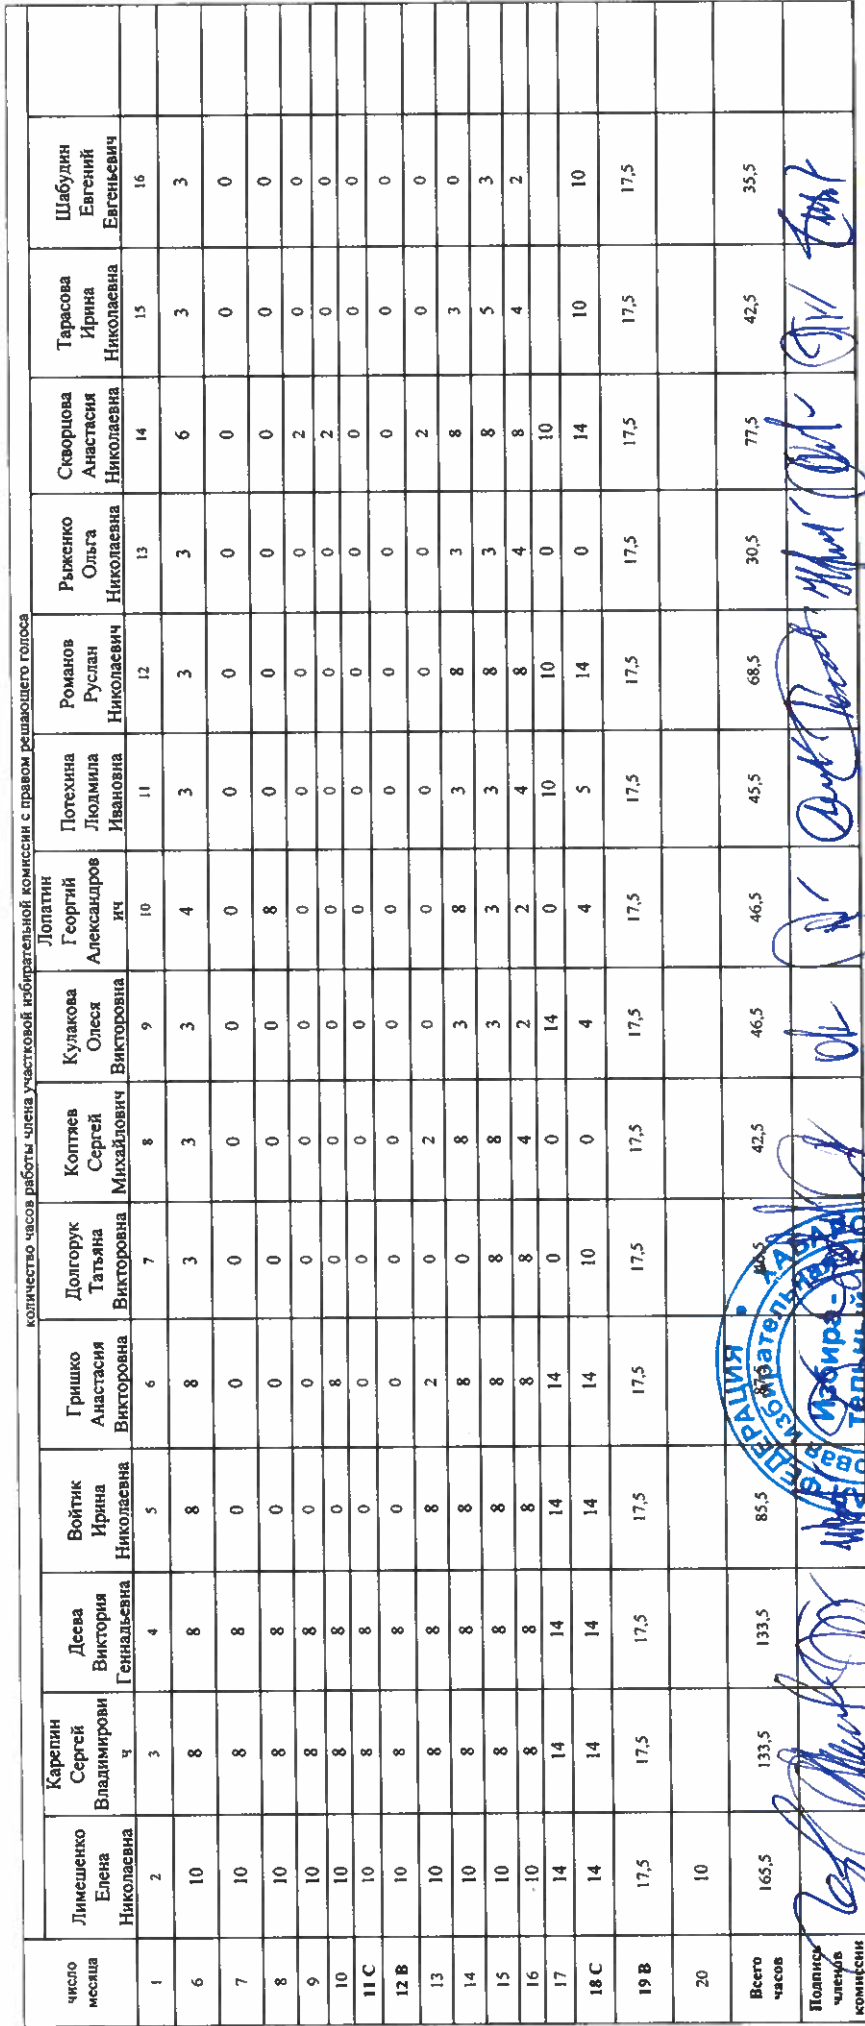 количество часов работы члена участковой избирательной комиссии с правом решающего голоса
число месяца | Лимешенко Елена Николаевна | Карепин Сергей Владимирови ч | Деева Виктория Геннадьевна | Войтик Ирина Николаевна | Гришко Анастасия Викторовна | Долгорук Татьяна Викторовна | Коптяев Сергей Михайлович | Кулакова Олеся Викторовна | Лопатин Георгий Александров ич | Потехина Людмила Ивановна | Романов Руслан Николаевич | Рыженко Ольга Николаевна | Скворцова Анастасия Николаевна | Тарасова Ирина Николаевна | Шабудин Евгений Евгеньевич
1 | 2 | 3 | 4 | 5 | 6 | 7 | 8 | 9 | 10 | 11 | 12 | 13 | 14 | 15 | 16
6 | 10 | 8 | 8 | 8 | 8 | 3 | 3 | 3 | 4 | 3 | 3 | 3 | 6 | 3 | 3
7 | 10 | 8 | 8 | 0 | 0 | 0 | 0 | 0 | 0 | 0 | 0 | 0 | 0 | 0 | 0
8 | 10 | 8 | 8 | 0 | 0 | 0 | 0 | 0 | 8 | 0 | 0 | 0 | 0 | 0 | 0
9 | 10 | 8 | 8 | 0 | 0 | 0 | 0 | 0 | 0 | 0 | 0 | 0 | 2 | 0 | 0
10 | 10 | 8 | 8 | 0 | 8 | 0 | 0 | 0 | 0 | 0 | 0 | 0 | 2 | 0 | 0
11 С | 10 | 8 | 8 | 0 | 0 | 0 | 0 | 0 | 0 | 0 | 0 | 0 | 0 | 0 | 0
12 В | 10 | 8 | 8 | 0 | 0 | 0 | 0 | 0 | 0 | 0 | 0 | 0 | 0 | 0 | 0
13 | 10 | 8 | 8 | 8 | 2 | 0 | 2 | 0 | 0 | 0 | 0 | 0 | 2 | 0 | 0
14 | 10 | 8 | 8 | 8 | 8 | 0 | 8 | 3 | 8 | 3 | 8 | 3 | 8 | 3 | 0
15 | 10 | 8 | 8 | 8 | 8 | 8 | 8 | 3 | 3 | 3 | 8 | 3 | 8 | 5 | 3
16 | 10 | 8 | 8 | 8 | 8 | 8 | 4 | 2 | 2 | 4 | 8 | 4 | 8 | 4 | 2
17 | 14 | 14 | 14 | 14 | 14 | 0 | 0 | 14 | 0 | 10 | 10 | 0 | 10
18 С | 14 | 14 | 14 | 14 | 14 | 10 | 0 | 4 | 4 | 5 | 14 | 0 | 14 | 10 | 10
19 В | 17,5 | 17,5 | 17,5 | 17,5 | 17,5 | 17,5 | 17,5 | 17,5 | 17,5 | 17,5 | 17,5 | 17,5 | 17,5 | 17,5 | 17,5
20 | 10
Всего часов | 165,5 | 133,5 | 133,5 | 85,5 | 42,5 | 46,5 | 46,5 | 45,5 | 68,5 | 30,5 | 77,5 | 42,5 | 35,5
Подпись членов комиссии
ФЕДЕРАЦИЯ
избирательная
Избира-